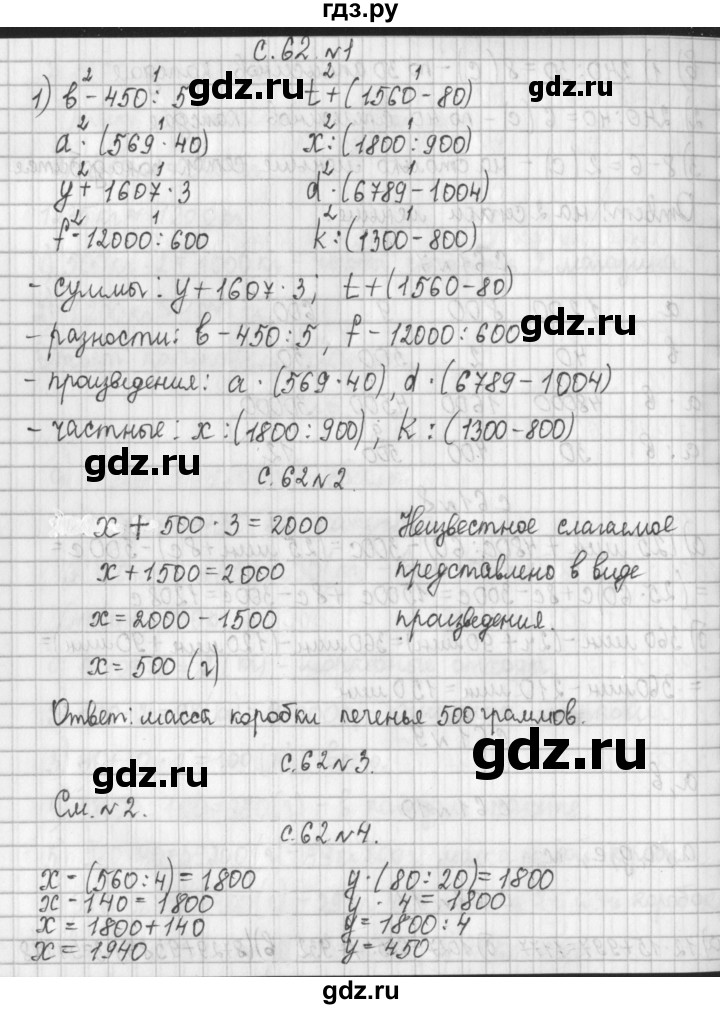 гдз.ру
с.62 №1
1) в - 450 : 5    t + (1560 - 80)
a · (569 · 40)    x : (1800 : 900)
y + 1607 · 3    d · (6789 - 1004)
f - 12000 : 600    k : (1300 - 800)
- суммы: y + 1607 · 3; t + (1560 - 80)
- разности: в - 450 : 5, f - 12000 : 600
- произведения: a · (569 · 40), d · (6789 - 1004)
- частные: x : (1800 : 900), k : (1300 - 800)
с.62 №2.
x + 500 · 3 = 2000    Неизвестное слагаемое
x + 1500 = 2000    представлено в виде
x = 2000 - 1500    произведения.
x = 500 (г)
Ответ: масса коробки печенья 500 граммов.
с.62 №3.
См. №2.
с.62 №4.
x - (560 : 4) = 1800    y · (80 : 20) = 1800
x - 140 = 1800    y · 4 = 1800
x = 1800 + 140    y = 1800 : 4
x = 1940    y = 450
gdz.ru